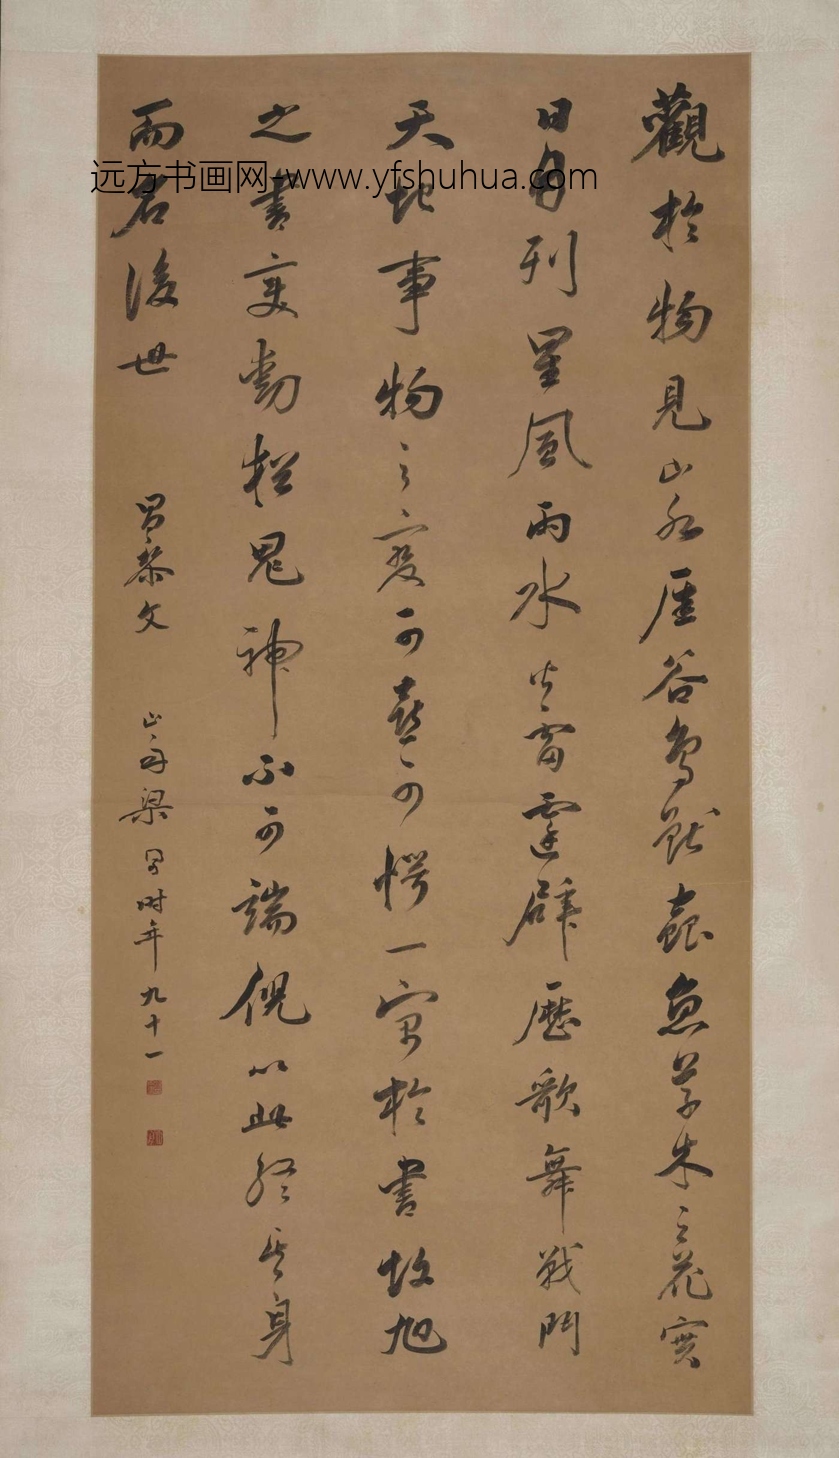 觀於物見山水厓谷鳥獸蟲魚草木之花實
日月列星風雨水火雷霆霹歷歌舞戰鬥
天地事物之變可喜可愕一寓於書故旭
之書變動猶鬼神不可端倪以此終其身
而名後世
昌黎文
山舟梁同書時年九十一
远方书画网-www.yfshuhua.com